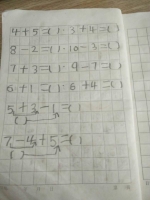 4+5=( ). 3+4=( )
8-2=( ). 10-3=( )
7+3=( ) 9-7=( )
6+1=( ) 6+4=( )
5+3-1=( )
( )
7-4+5=( )
( )